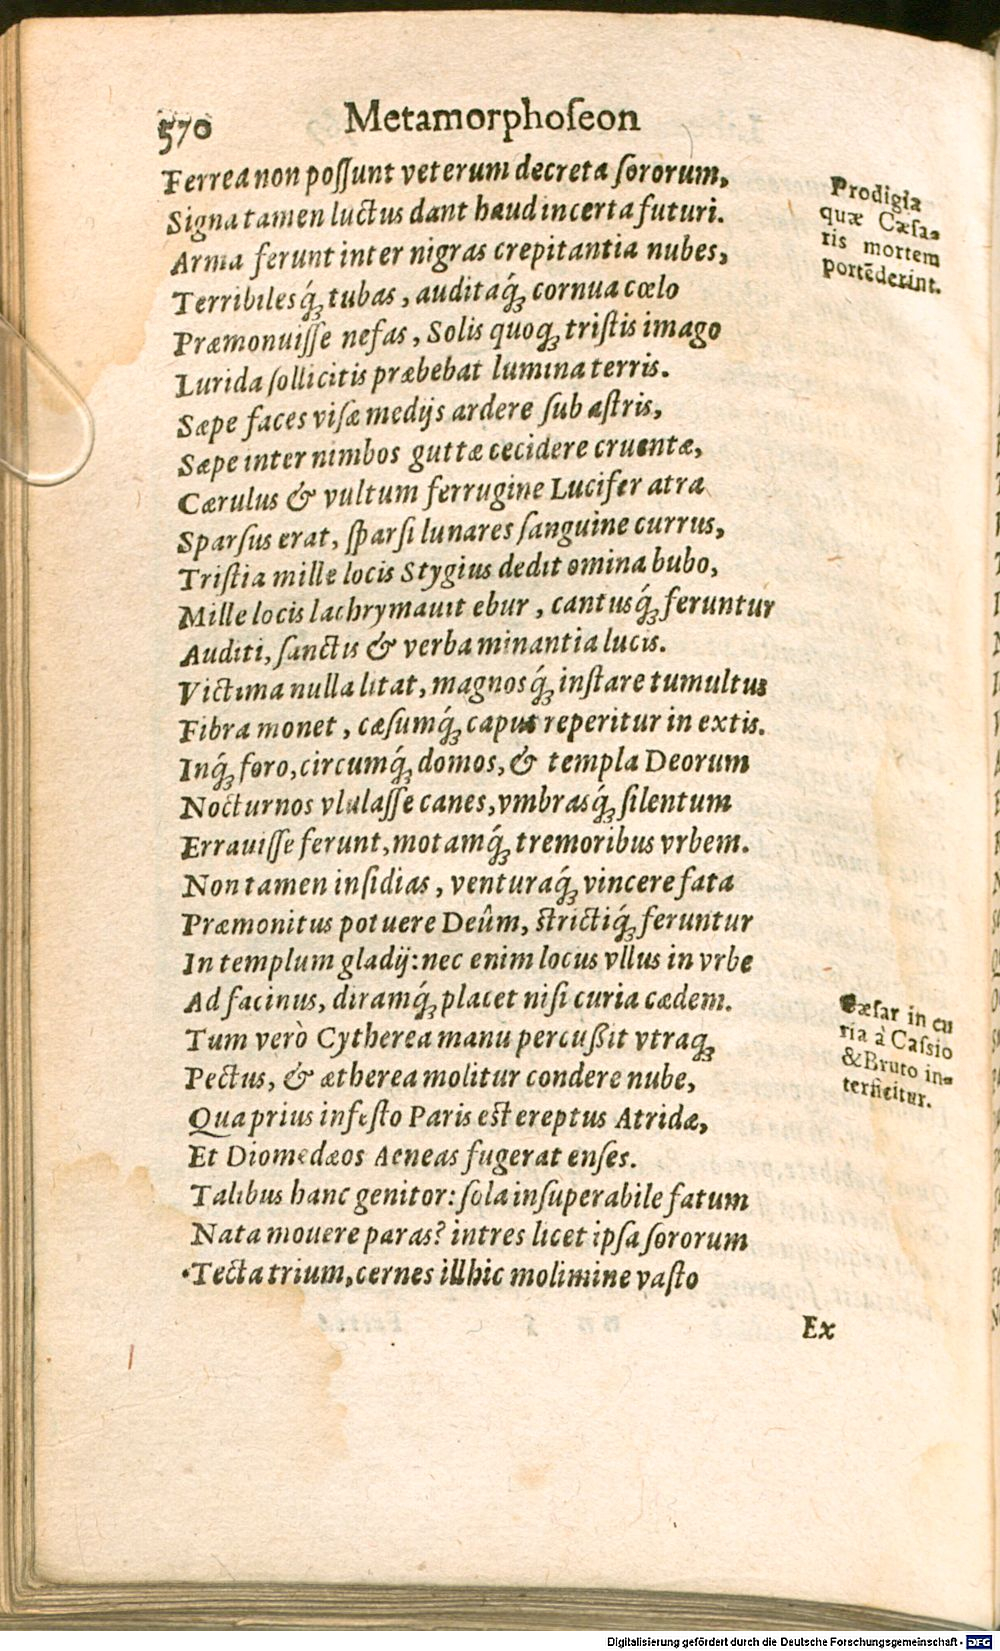 570 Metamorphoſeon
Ferrea non poſſunt veterum decreta ſororum,
Signa tamen luctus dant haud incerta futuri.
Arma ferunt inter nigras crepitantia nubes,
Terribilesq́ꝫ tubas, auditaq́ꝫ cornua cœlo
Præmonuiſſe nefas, Solis quoqꝫ triſtis imago
Lurida ſollicitis præbebat lumina terris.
Sæpe faces viſæ medijs ardere ſub aſtris,
Sæpe inter nimbos guttæ cecidere cruentæ,
Cærulus & vultum ferrugine Lucifer atra
Sparſus erat, ſparſi lunares ſanguine currus,
Triſtia mille locis Stygius dedit omina bubo,
Mille locis lachrymauit ebur, cantusq́ꝫ feruntur
Auditi, ſanctis & verba minantia lucis.
Victima nulla litat, magnosq́ꝫ inſtare tumultus
Fibra monet, cæſumq́ꝫ caput reperitur in extis.
Inq́ꝫ foro, circumq́ꝫ domos, & templa Deorum
Nocturnos vlulaſſe canes, vmbrasq́ꝫ ſilentum
Errauiſſe ferunt, motamq́ꝫ tremoribus vrbem.
Non tamen inſidias, venturaq́ꝫ vincere fata
Præmonitus potuere Deûm, ſtrictiq́ꝫ feruntur
In templum gladij: nec enim locus vllus in vrbe
Ad facinus, diramq́ꝫ placet niſi curia cædem.
Tum verò Cytherea manu percußit vtraqꝫ
Pectus, & ætherea molitur condere nube,
Qua prius infeſto Paris eſt ereptus Atridæ,
Et Diomedæos Aeneas fugerat enſes.
Talibus hanc genitor: ſola inſuperabile fatum
Nata mouere paras? intres licet ipſa ſororum
Tecta trium, cernes illhic molimine vaſto
Ex
Prodigia
quæ Cæſa-
ris mortem
portẽderint.
Cæſar in cu
ria à Caſsio
& Bruto in-
terficitur.
Digitalisierung gefördert durch die Deutsche Forschungsgemeinschaft - DFG